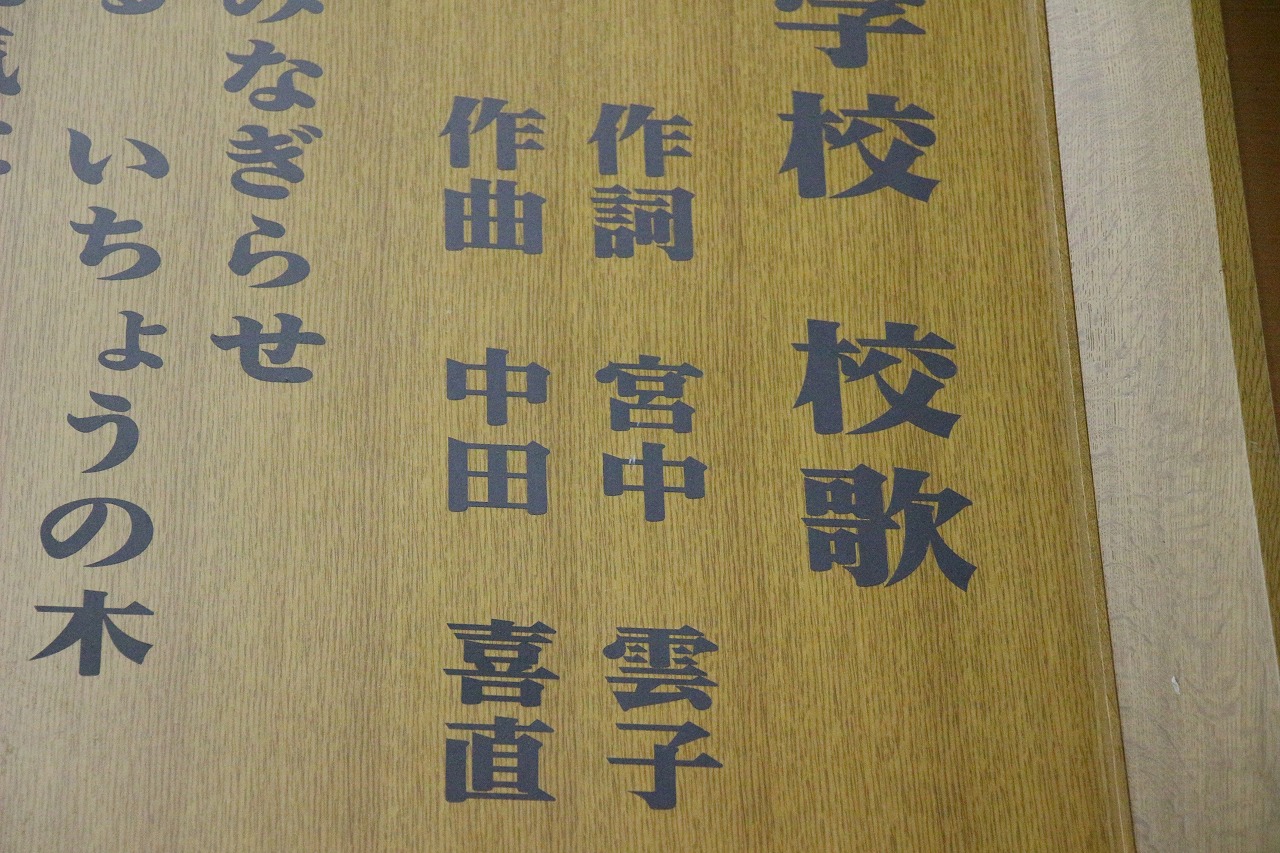 学校 校歌
作詞 宮中 雲子
作曲 中田 喜直
みなぎらせ
いちょうの木